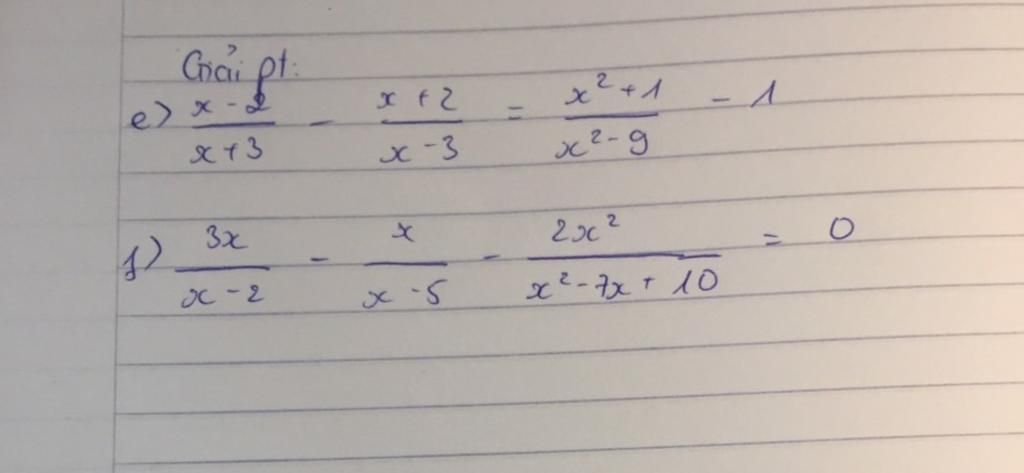 Giải pt:
e) \frac{x-2}{x+3} - \frac{x+2}{x-3} = \frac{x^2+1}{x^2-9} - 1
f) \frac{3x}{x-2} - \frac{x}{x-5} - \frac{2x^2}{x^2-7x+10} = 0